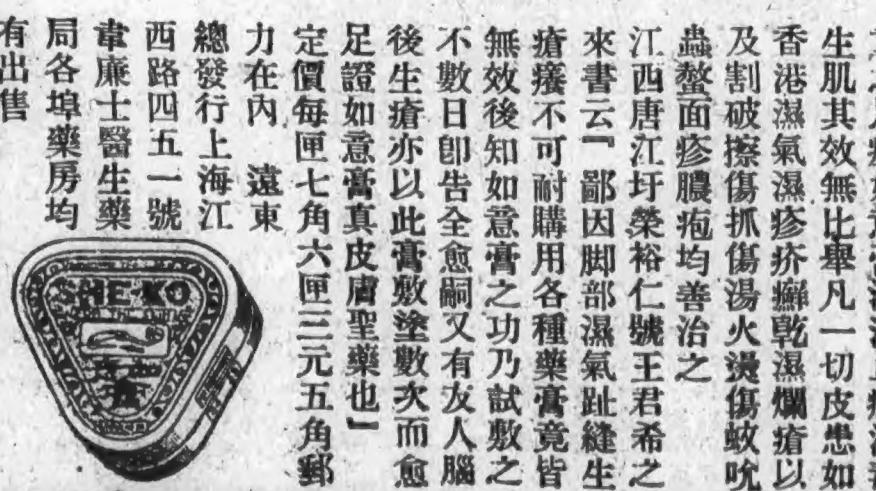 生肌其效無比舉凡一切皮患如
香港濕氣濕疹疥癬乾濕爛瘡以
及割破擦傷抓傷湯火燙傷蚊吮
蟲螫面疹膿疱均善治之
江西唐江圩榮裕仁號王君希之
來書云『鄙因脚部濕氣趾縫生
瘡癢不可耐購用各種藥膏竟皆
無效後知如意膏之功乃試敷之
不數日卽告全愈嗣又有友人腦
後生瘡亦以此膏敷塗數次而愈
足證如意膏真皮膚聖藥也』
定價每匣七角六匣三元五角郵
力在內 遠東
總發行上海江
西路四五一號
韋廉士醫生藥
局各埠藥房均
有出售
SHE-KO